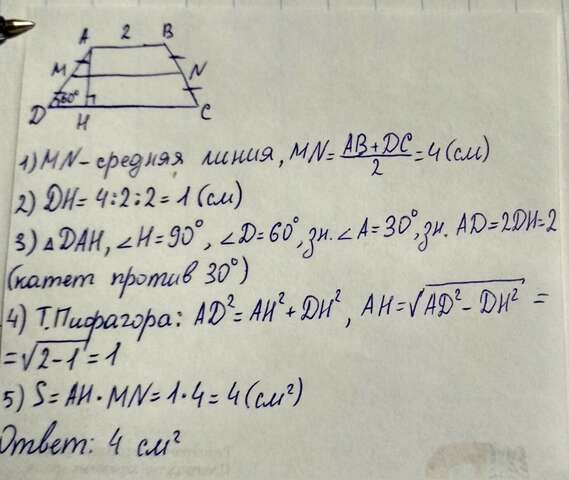 A 2 B
M N
60°
D H C
1) MN - средняя линия, MN = (AB+DC)/2 = 4 (см)
2) DH = 4:2:2 = 1 (см)
3) △DAH, ∠H=90°, ∠D=60°, зн. ∠A=30°, зн. AD=2DH=2
(катет против 30°)
4) Т.Пифагора: AD²=AH²+DH², AH=√(AD²-DH²) =
=√(2-1)=1
5) S=AH·MN=1·4=4(см²)
Ответ: 4 см²